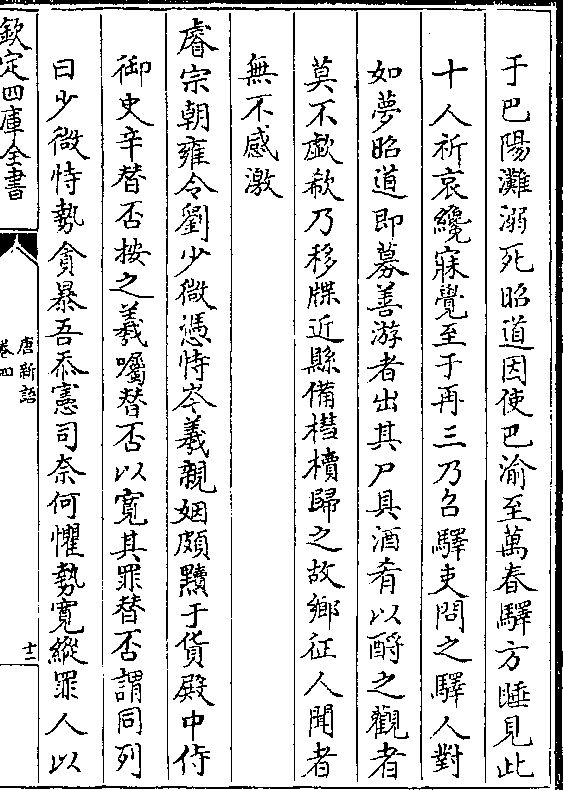 于巴陽灘溺死昭道因使巴渝至萬春驛方睡見此
十人祈哀纔寐覺至于再三乃召驛吏問之驛人對
如夢昭道即募善游者出其尸具酒肴以酹之觀者
莫不歔欷乃移牒近縣備槥櫝歸之故鄉征人聞者
無不感激
睿宗朝雍令劉少微憑恃岑羲親姻頗黷于貨殿中侍
御史辛替否按之羲囑替否以寬其罪替否謂同列
曰少微恃勢貪暴吾忝憲司奈何懼勢寬縱罪人以
欽定四庫全書
唐新語
卷四
十二